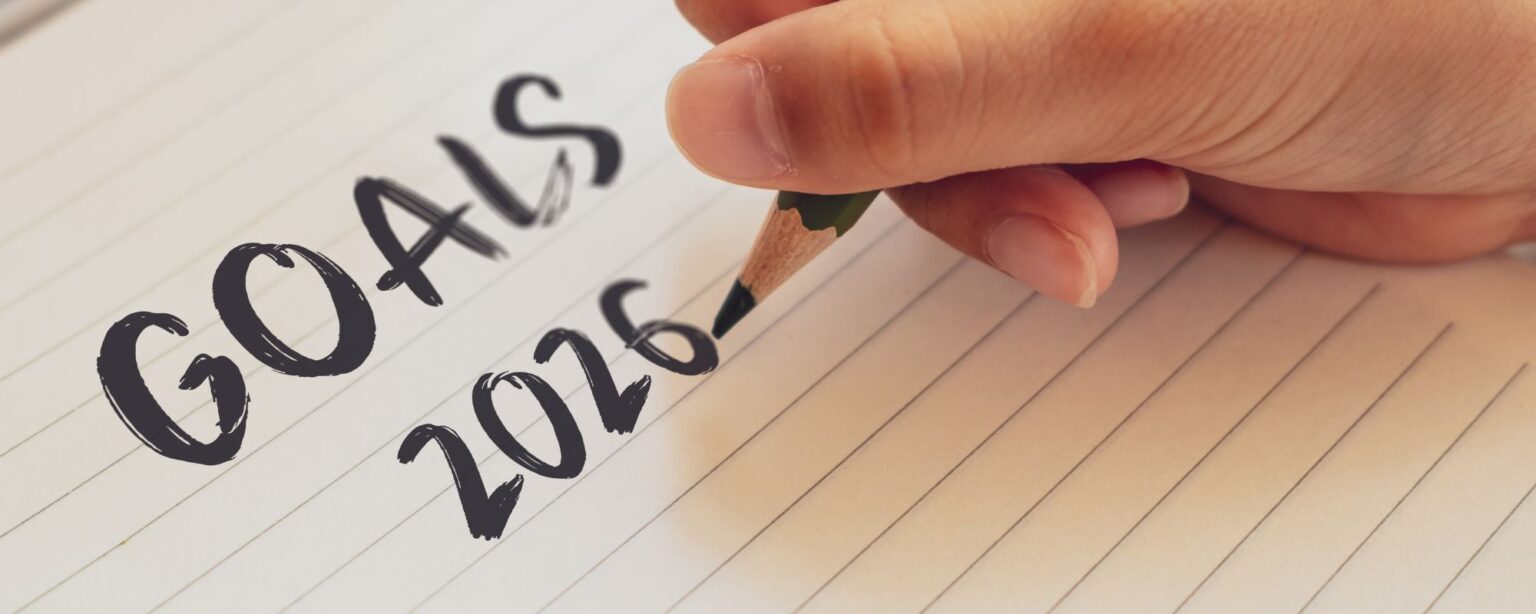 GOALS
2026